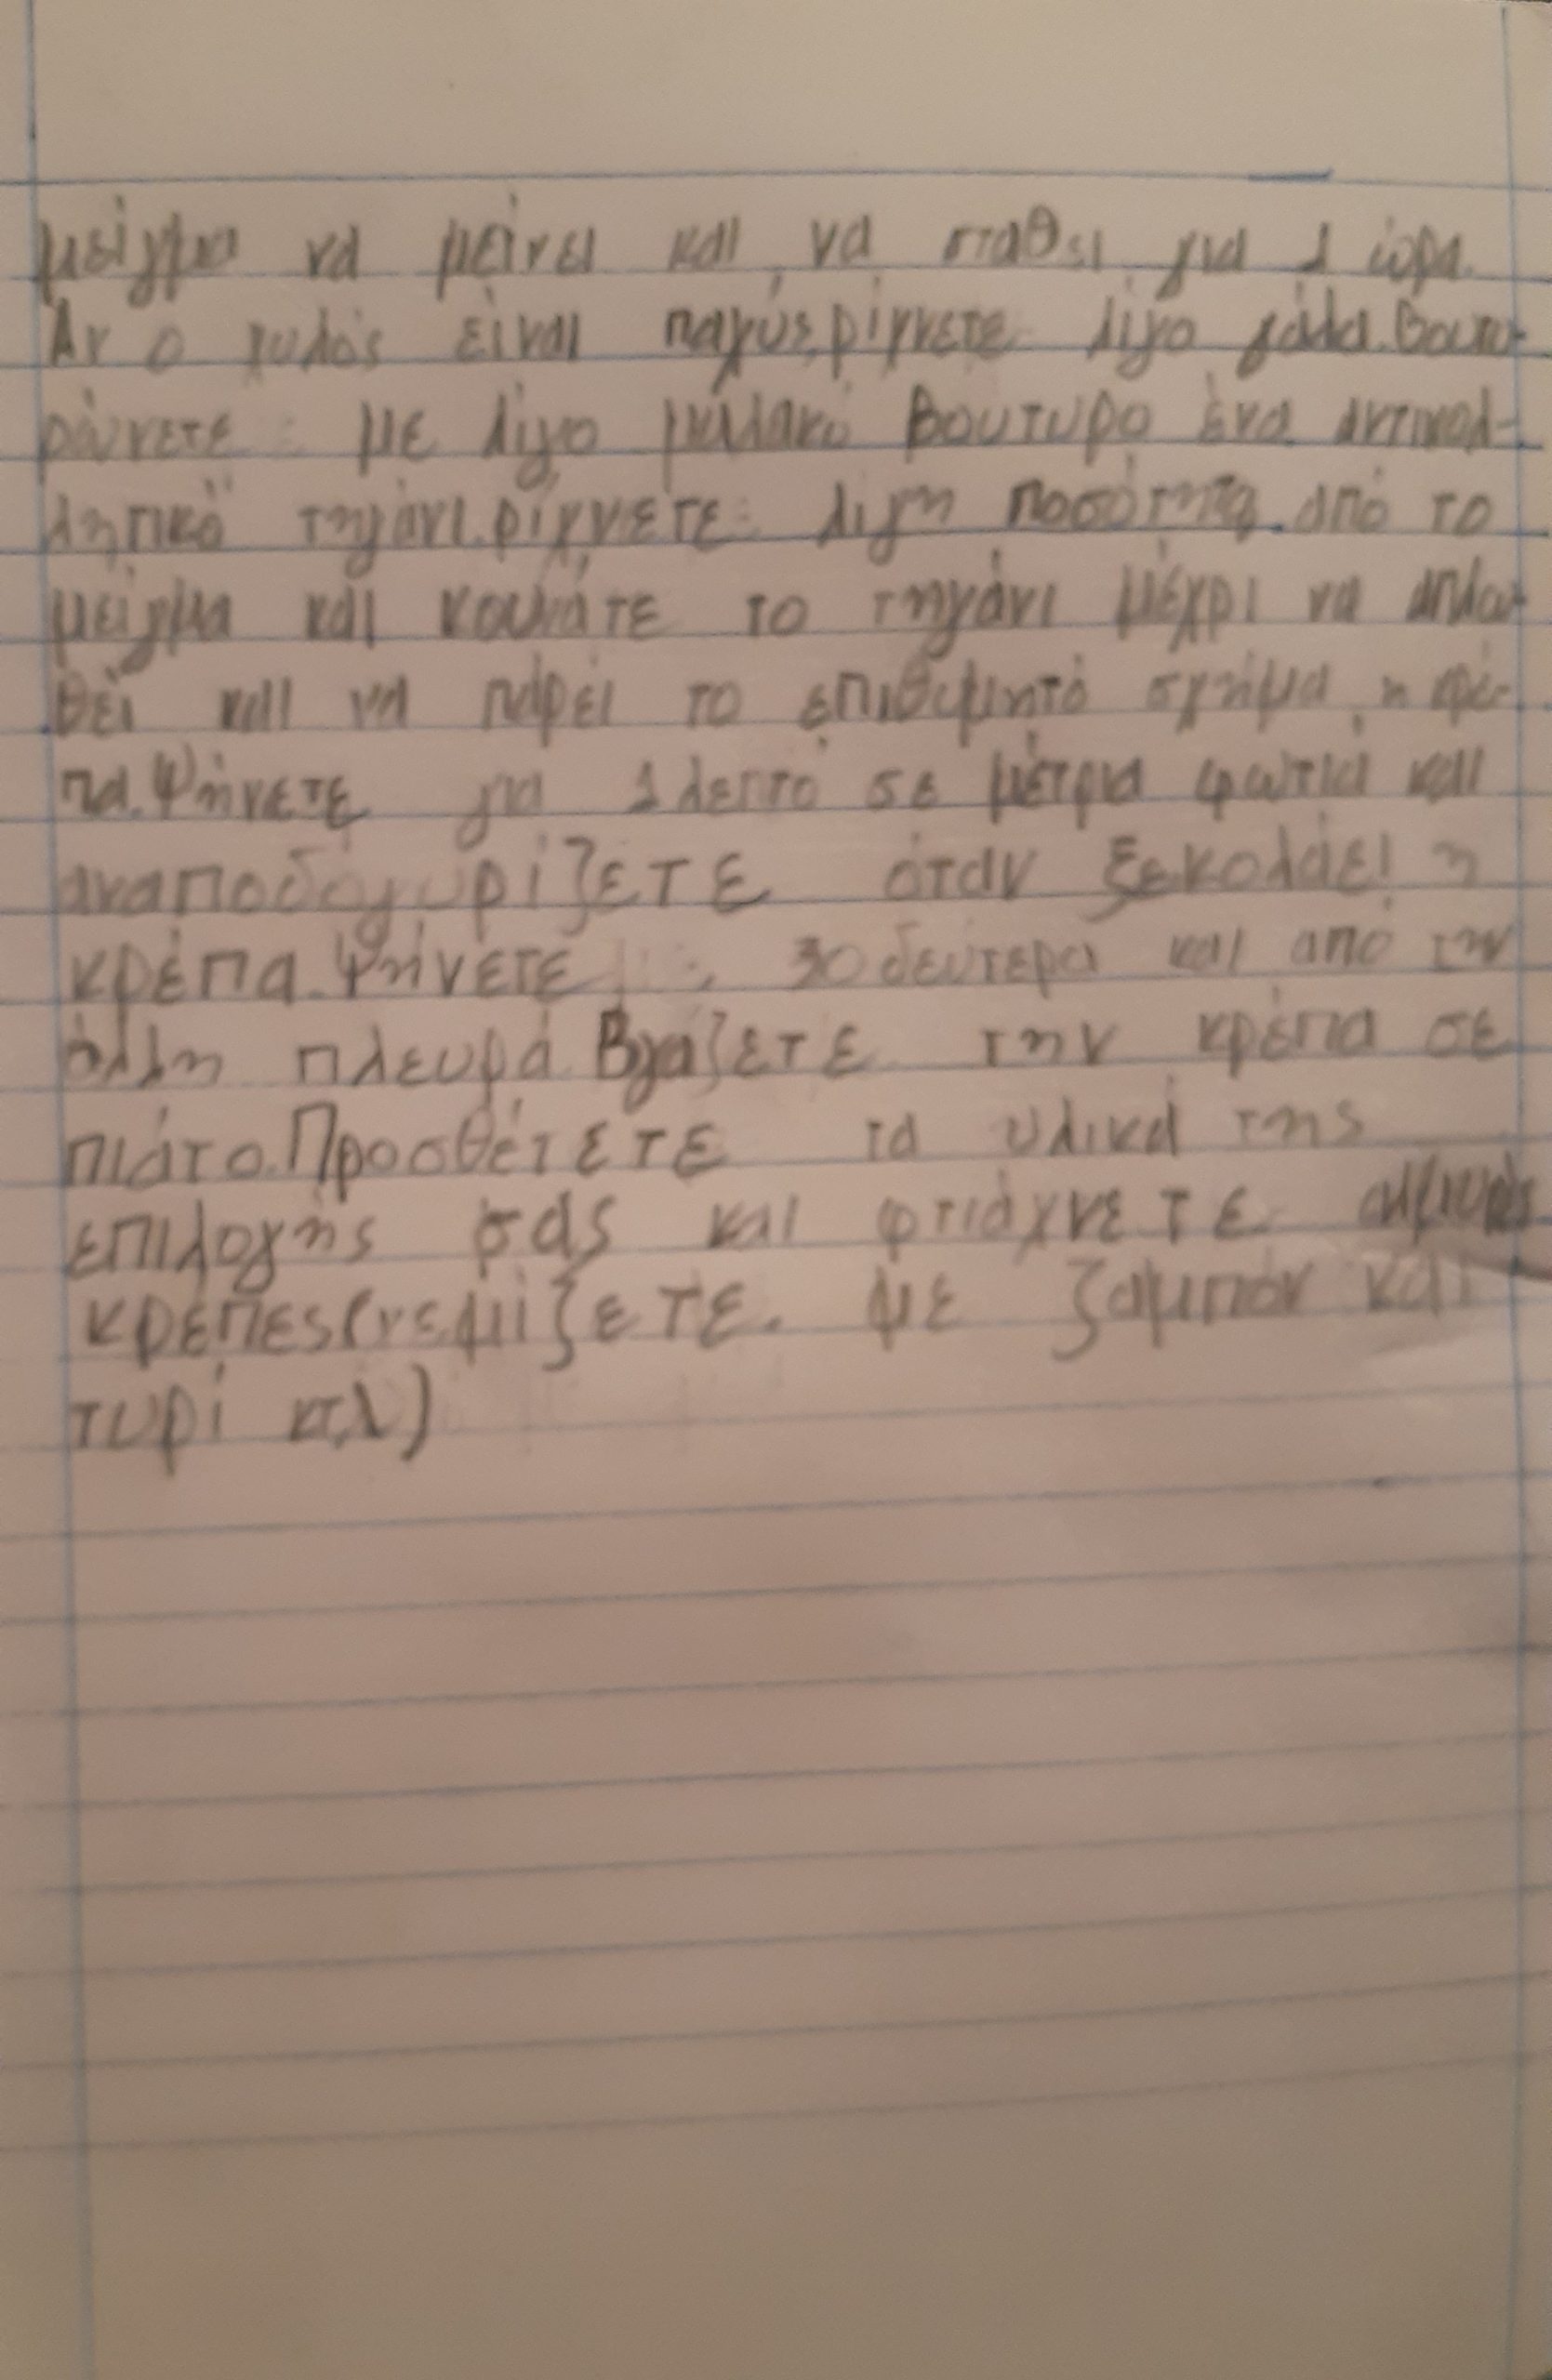 μείγμα να μείνει και να σταθεί για 1 ώρα.
Αν ο χυλός είναι παχύς, ρίχνετε λίγο γάλα. Βουτυ-
ρώνετε με λίγο μαλακό βούτυρο ένα αντικολ-
λητικό τηγάνι. ρίχνετε λίγη ποσότητα από το
μείγμα και κουνάτε το τηγάνι μέχρι να απλω-
θεί και να πάρει το επιθυμητό σχήμα, η κρέ-
πα. Ψήνετε για 1 λεπτό σε μέτρια φωτιά και
αναποδογυρίζετε όταν ξεκολάει η
κρέπα. Ψήνετε 30 δεύτερα και από την
άλλη πλευρά. Βγάζετε την κρέπα σε
πιάτο. Προσθέτετε τα υλικά της
επιλογής σας και φτιάχνετε αλμυρές
κρέπες (γεμίζετε με ζαμπόν και
τυρί κτλ)